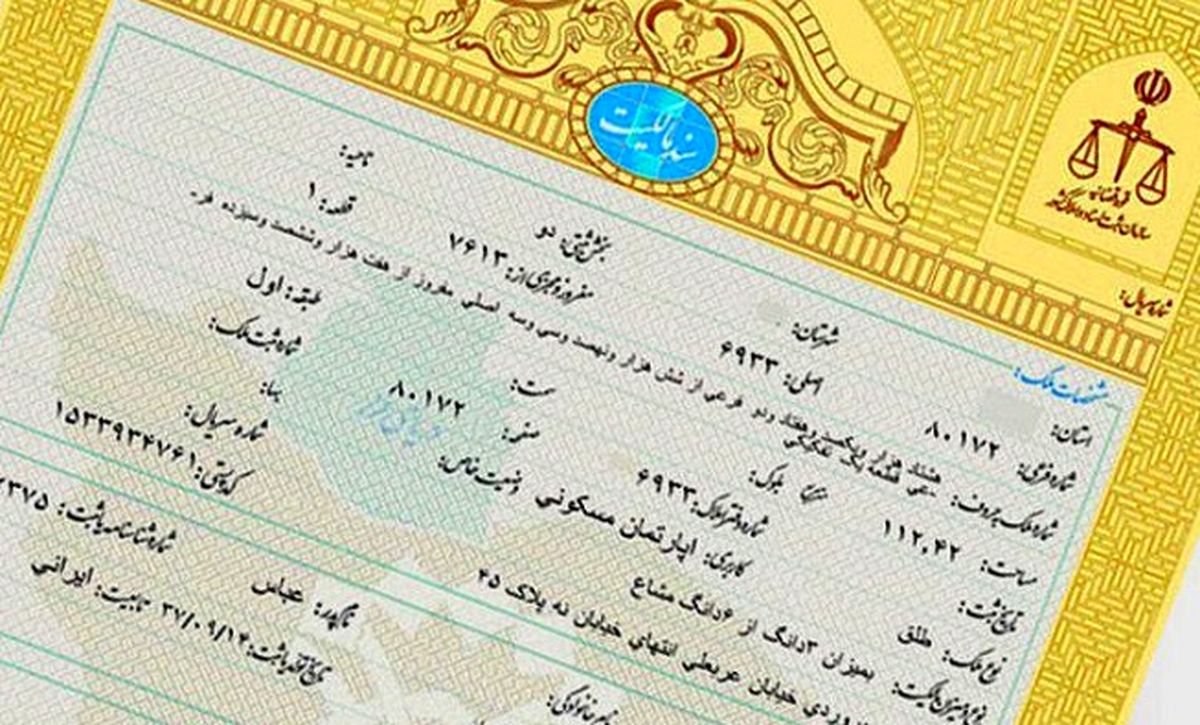 سند مالکیت
قوه قضائیه
سازمان ثبت اسناد و املاک کشور
شماره سریال:
مشخصات ملک:
استان: شهرستان: بخش ثبتی: دو ناحیه:
شماره فرعی: ۸۰۱۷۲ اصلی: ۶۹۳۳ مفروز و مجزی از: ۷۶۱۳ قطعه: ۱
شماره ملک بحروف: هشتاد هزار و یکصد و هفتاد و دو فرعی از شش هزار و نهصد و سی و سه اصلی مفروز از هفت هزار و ششصد و سیزده فر-
-عی قطعه یک تفکیکی
مساحت: ۱۱۲,۴۲ بلوک: سمت: طبقه: اول
تاریخ ثبت: شماره دفتر املاک: ۶۹۳۳ صفحه: ۸۰۱۷۲ شماره ثبت ملک:
نوع ملک: طلق کاربری: اپارتمان مسکونی وضعیت خاص: بهاء:
نوع و میزان مالکیت: بمیزان ۳دانگ از ۶دانگ مشاع شماره سریال:
خیابان عربعلی انتهای خیابان نه پلاک ۴۵ کد پستی: ۱۵۳۳۹۳۴۷۶۱
نام خانوادگی: نام پدر: عباس شماره شناسنامه/ثبت: ۳۷۵
تاریخ تولد/ثبت: ۲۷/۰۹/۱۴ تابعیت: ایرانی